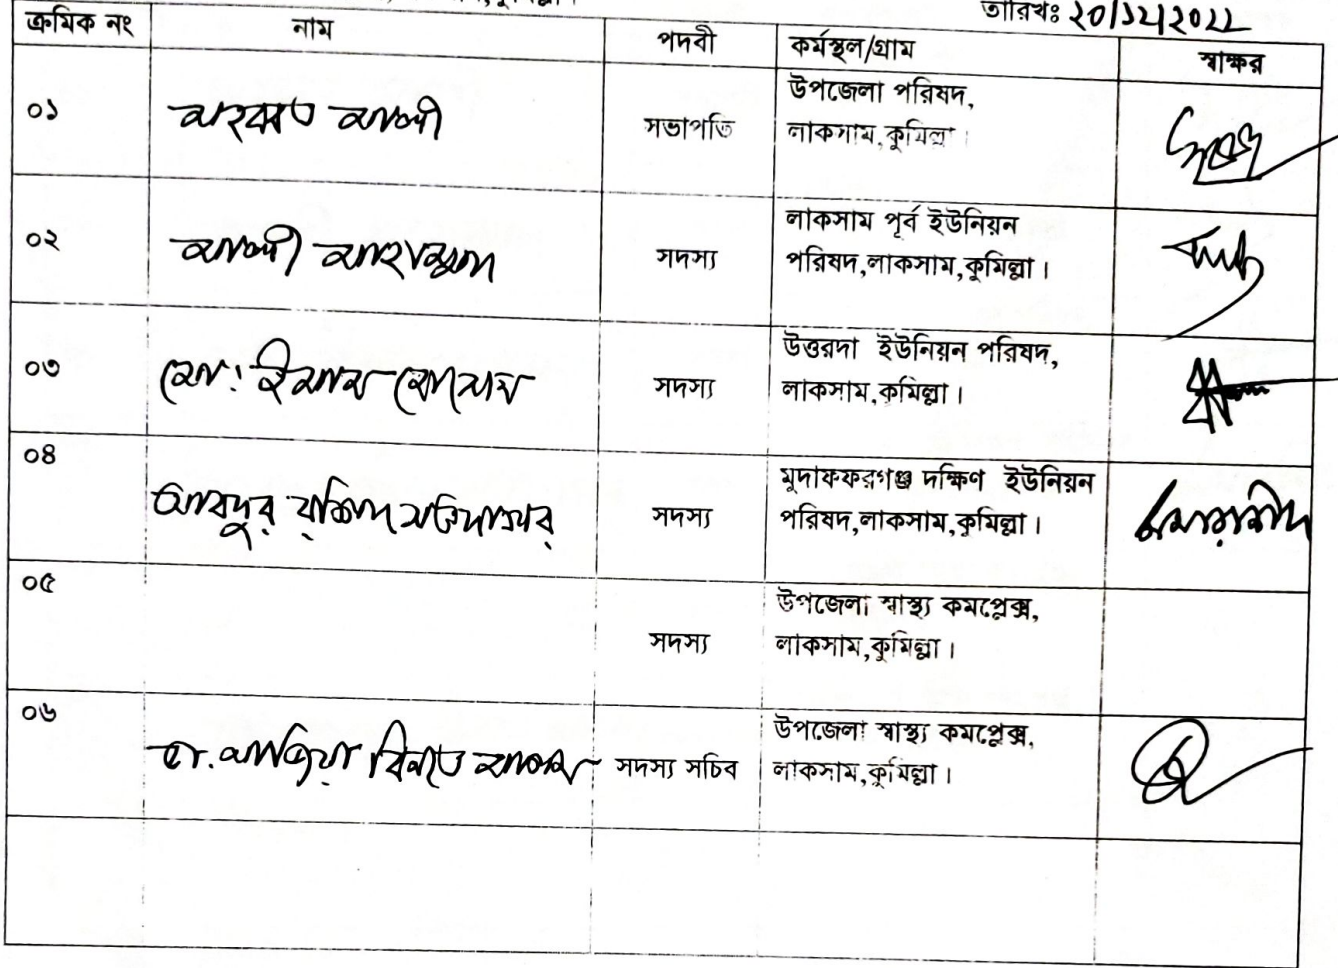 তারিখঃ ২০/১২/২০২২
ক্রমিক নং নাম পদবী কর্মস্থল/গ্রাম স্বাক্ষর
০১ মহব্বত আলী সভাপতি উপজেলা পরিষদ,
লাকসাম,কুমিল্লা।
০২ আলী আহাম্মদ সদস্য লাকসাম পূর্ব ইউনিয়ন
পরিষদ,লাকসাম,কুমিল্লা।
০৩ মো: ইমাম হোসেন সদস্য উত্তরদা ইউনিয়ন পরিষদ,
লাকসাম,কুমিল্লা।
০৪ আবদুর রশিদ সওদাগর সদস্য মুদাফফরগঞ্জ দক্ষিণ ইউনিয়ন
পরিষদ,লাকসাম,কুমিল্লা।
০৫ সদস্য উপজেলা স্বাস্থ্য কমপ্লেক্স,
লাকসাম,কুমিল্লা।
০৬ ডা. নাজিয়া বিনতে আলম সদস্য সচিব উপজেলা স্বাস্থ্য কমপ্লেক্স,
লাকসাম,কুমিল্লা।